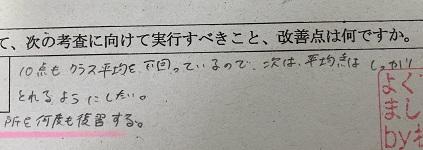 て、次の考査に向けて実行すべきこと、改善点は何ですか。
10点もクラス平均を下回っているので、次は、平均点はしっかり
とれるようにしたい。
所を何度も復習する。
よく
まし
by